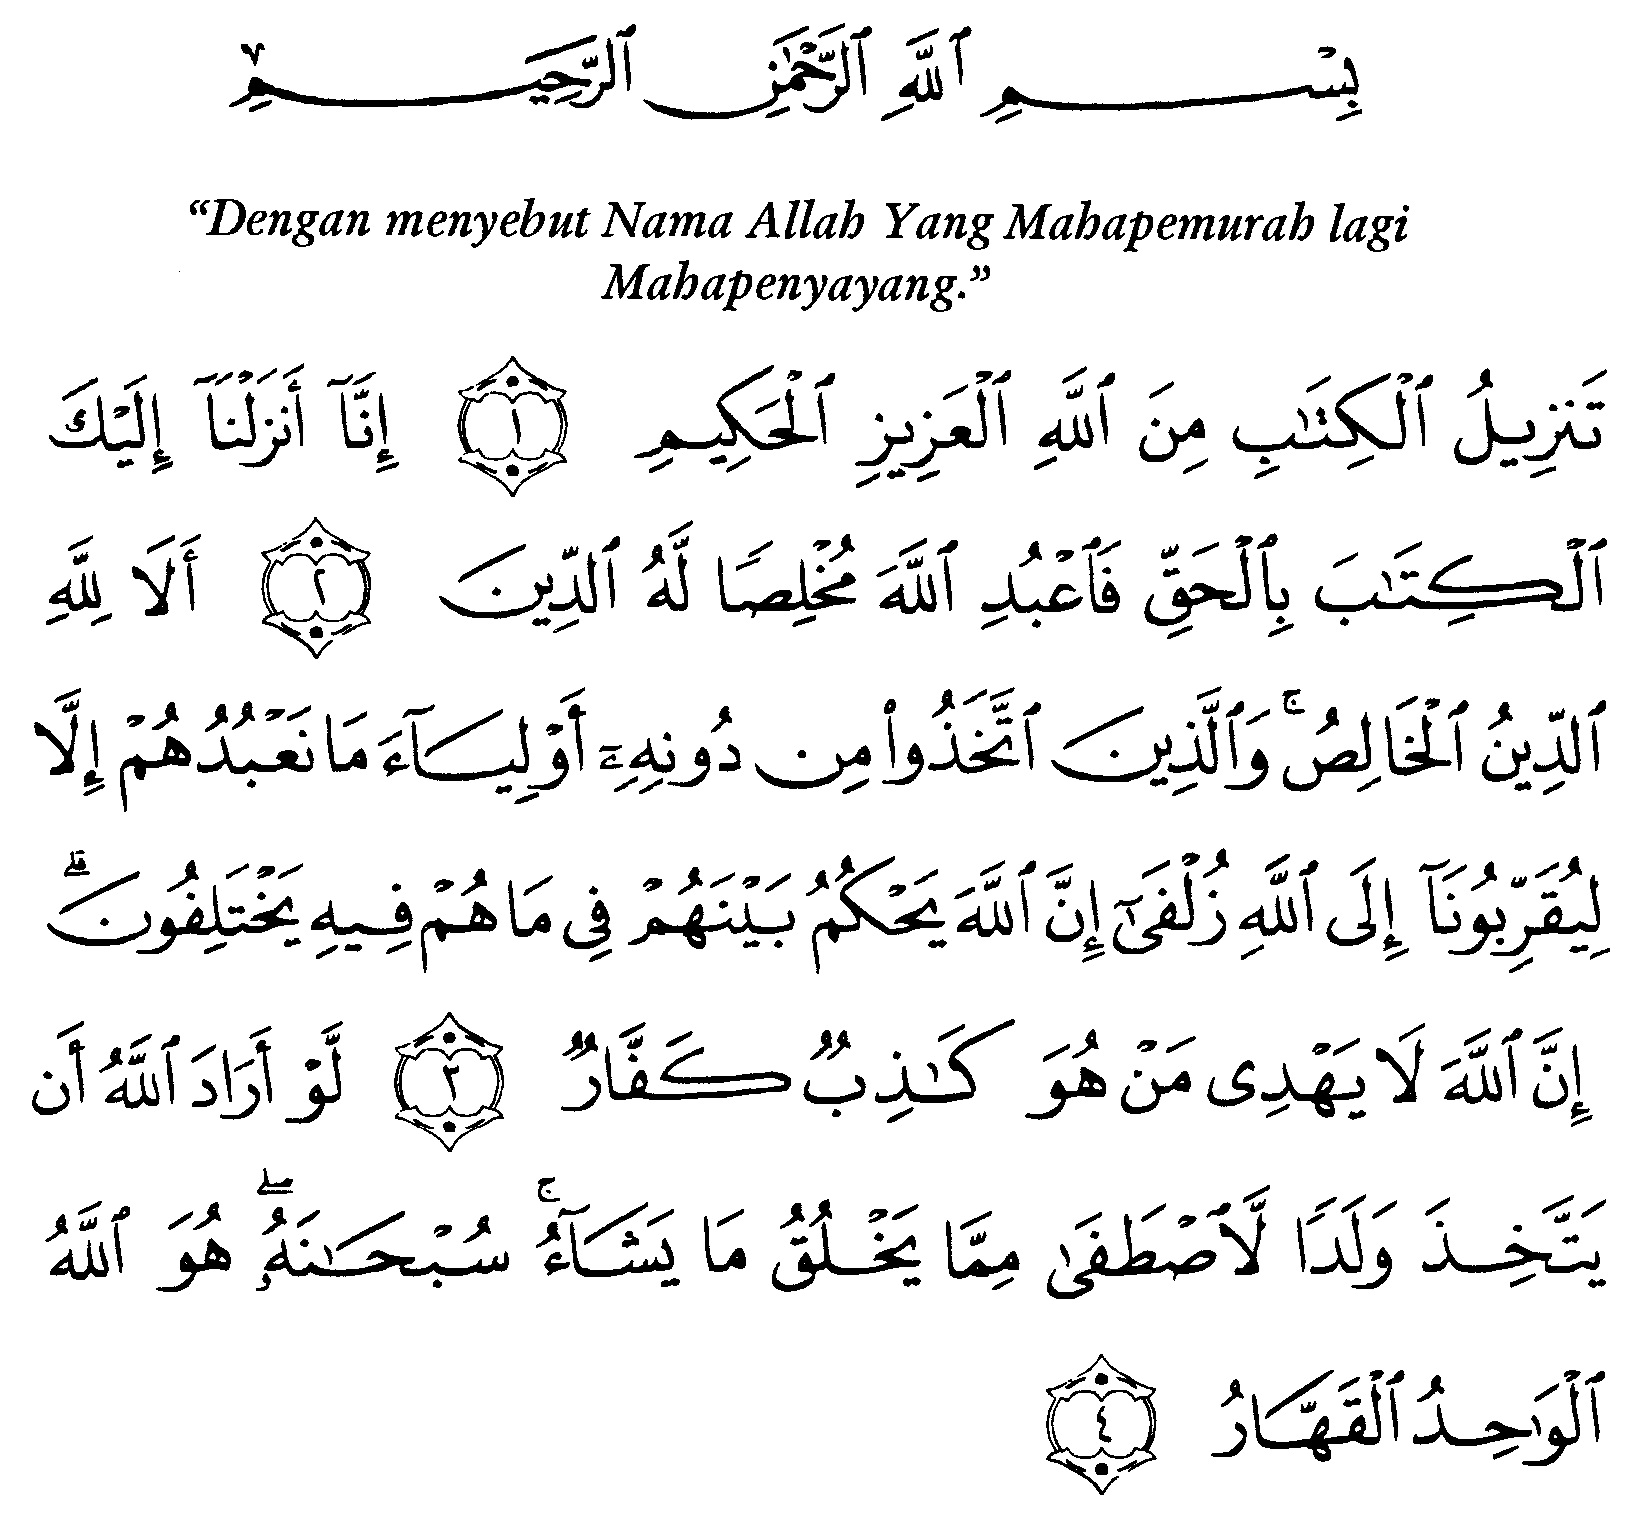 بِسْمِ ٱللَّهِ ٱلرَّحْمَٰنِ ٱلرَّحِيمِ
“Dengan menyebut Nama Allah Yang Mahapemurah lagi
Mahapenyayang.”
تَنزِيلُ ٱلْكِتَٰبِ مِنَ ٱللَّهِ ٱلْعَزِيزِ ٱلْحَكِيمِ ١ إِنَّآ أَنزَلْنَآ إِلَيْكَ
ٱلْكِتَٰبَ بِٱلْحَقِّ فَٱعْبُدِ ٱللَّهَ مُخْلِصًا لَّهُ ٱلدِّينَ ٢ أَلَا لِلَّهِ
ٱلدِّينُ ٱلْخَالِصُ ۚ وَٱلَّذِينَ ٱتَّخَذُوا۟ مِن دُونِهِۦٓ أَوْلِيَآءَ مَا نَعْبُدُهُمْ إِلَّا
لِيُقَرِّبُونَآ إِلَى ٱللَّهِ زُلْفَىٰٓ إِنَّ ٱللَّهَ يَحْكُمُ بَيْنَهُمْ فِى مَا هُمْ فِيهِ يَخْتَلِفُونَ ۗ
إِنَّ ٱللَّهَ لَا يَهْدِى مَنْ هُوَ كَٰذِبٌ كَفَّارٌ ٣ لَّوْ أَرَادَ ٱللَّهُ أَن
يَتَّخِذَ وَلَدًا لَّٱصْطَفَىٰ مِمَّا يَخْلُقُ مَا يَشَآءُ ۚ سُبْحَٰنَهُۥ ۖ هُوَ ٱللَّهُ
ٱلْوَٰحِدُ ٱلْقَهَّارُ ٤